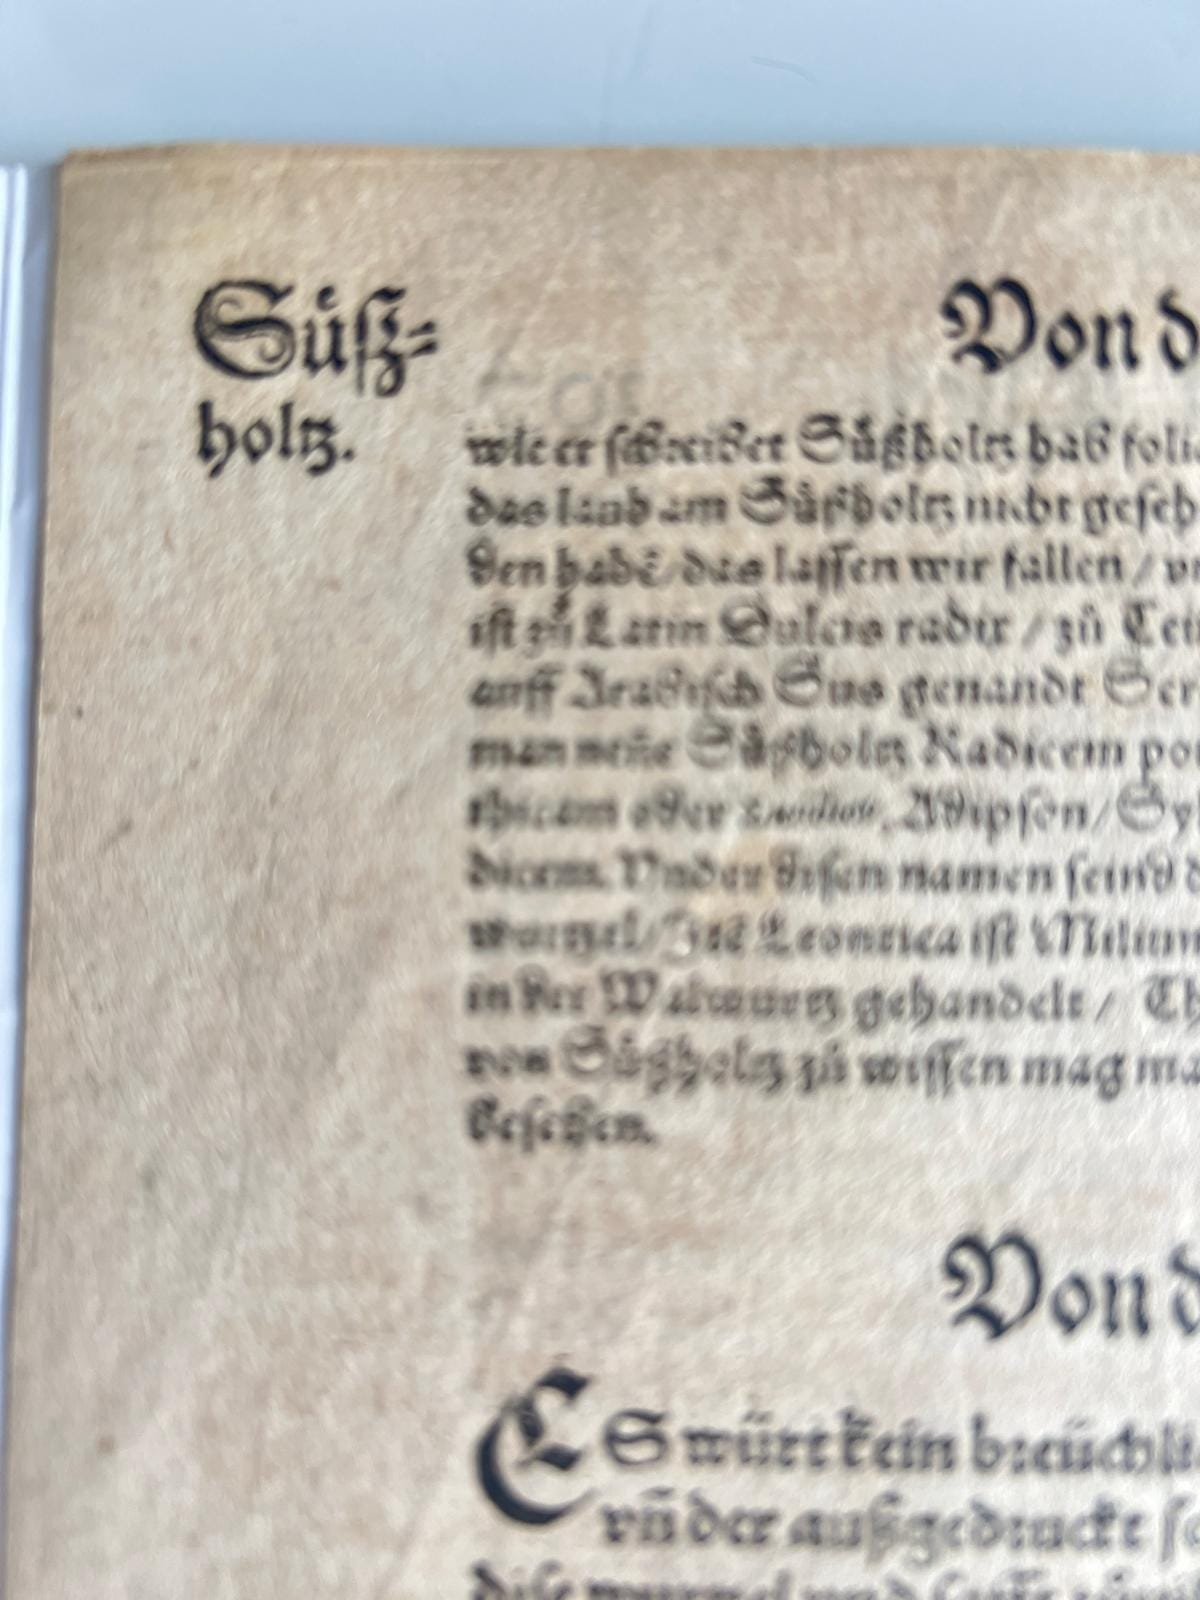 Süß-
holtz.
Von d
wie er schreibet Süßholtz hab foli
das laub am Süßholtz nicht geseh
ben habē/das lassen wir fallen/ vn
ist zů Latin Dulcis radix / zů
auff Arabisch Sus genandt Ser
man neñe Süßholtz Radicem po
thicam oder Adipson/Sy
dicem. Vnder disen namen seind d
wurtzel/ Leontica ist Milium
in der Walwurtz gehandelt/ Th
von Süßholtz zů wissen mag ma
besehen.
Von d
ES würt kein breüchli
vñ der außgedruckt